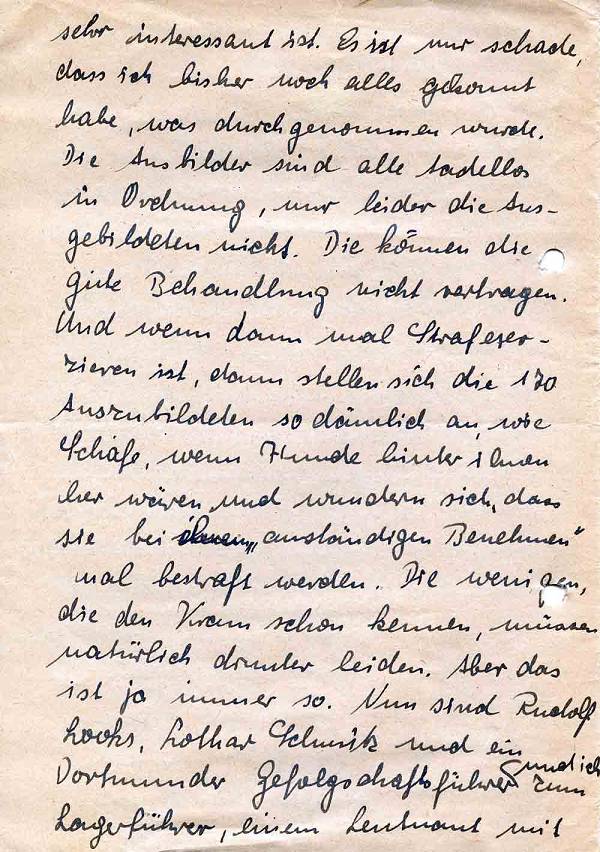 sehr interessant ist. Es ist nur schade,
dass ich bisher noch alles gekonnt
habe, was durchgenommen wurde.
Die Ausbilder sind alle tadellos
in Ordnung, nur leider die Aus-
gebildeten nicht. Die können die
gute Behandlung nicht vertragen.
Und wenn dann mal Strafexer-
zieren ist, dann stellen sich die 170
Auszubildeten so dämlich an, wie
Schafe, wenn Hunde hinter ihnen
her wären, und wundern sich, dass
sie bei „anständigen Benehmen"
mal bestraft werden. Die wenigen,
die den Kram schon kennen, müssen
natürlich drunter leiden. Aber das
ist ja immer so. Nun sind Rudolf
Looks, Lothar Schmitz und ein
Dortmunder Gefolgschaftsführer und ich zum
Lagerführer, einem Leutnant mit